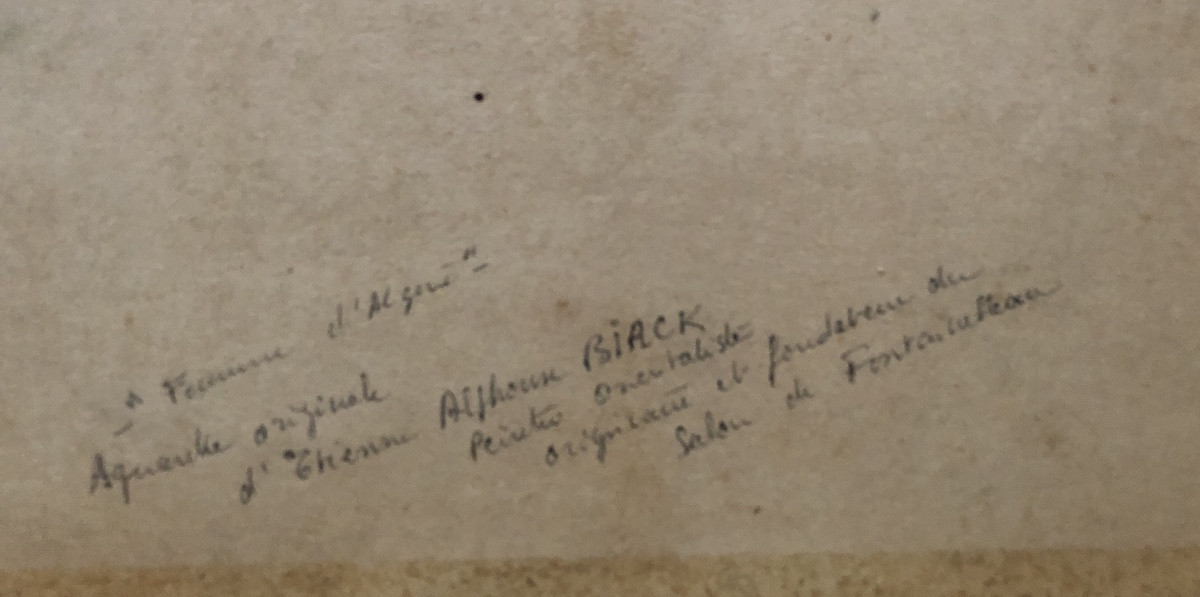 "Femme d'Algérie"
Aquarelle originale
d'Etienne Alphonse BiACK
Peintre orientaliste
originaire et fondateur du
Salon de Fontainebleau